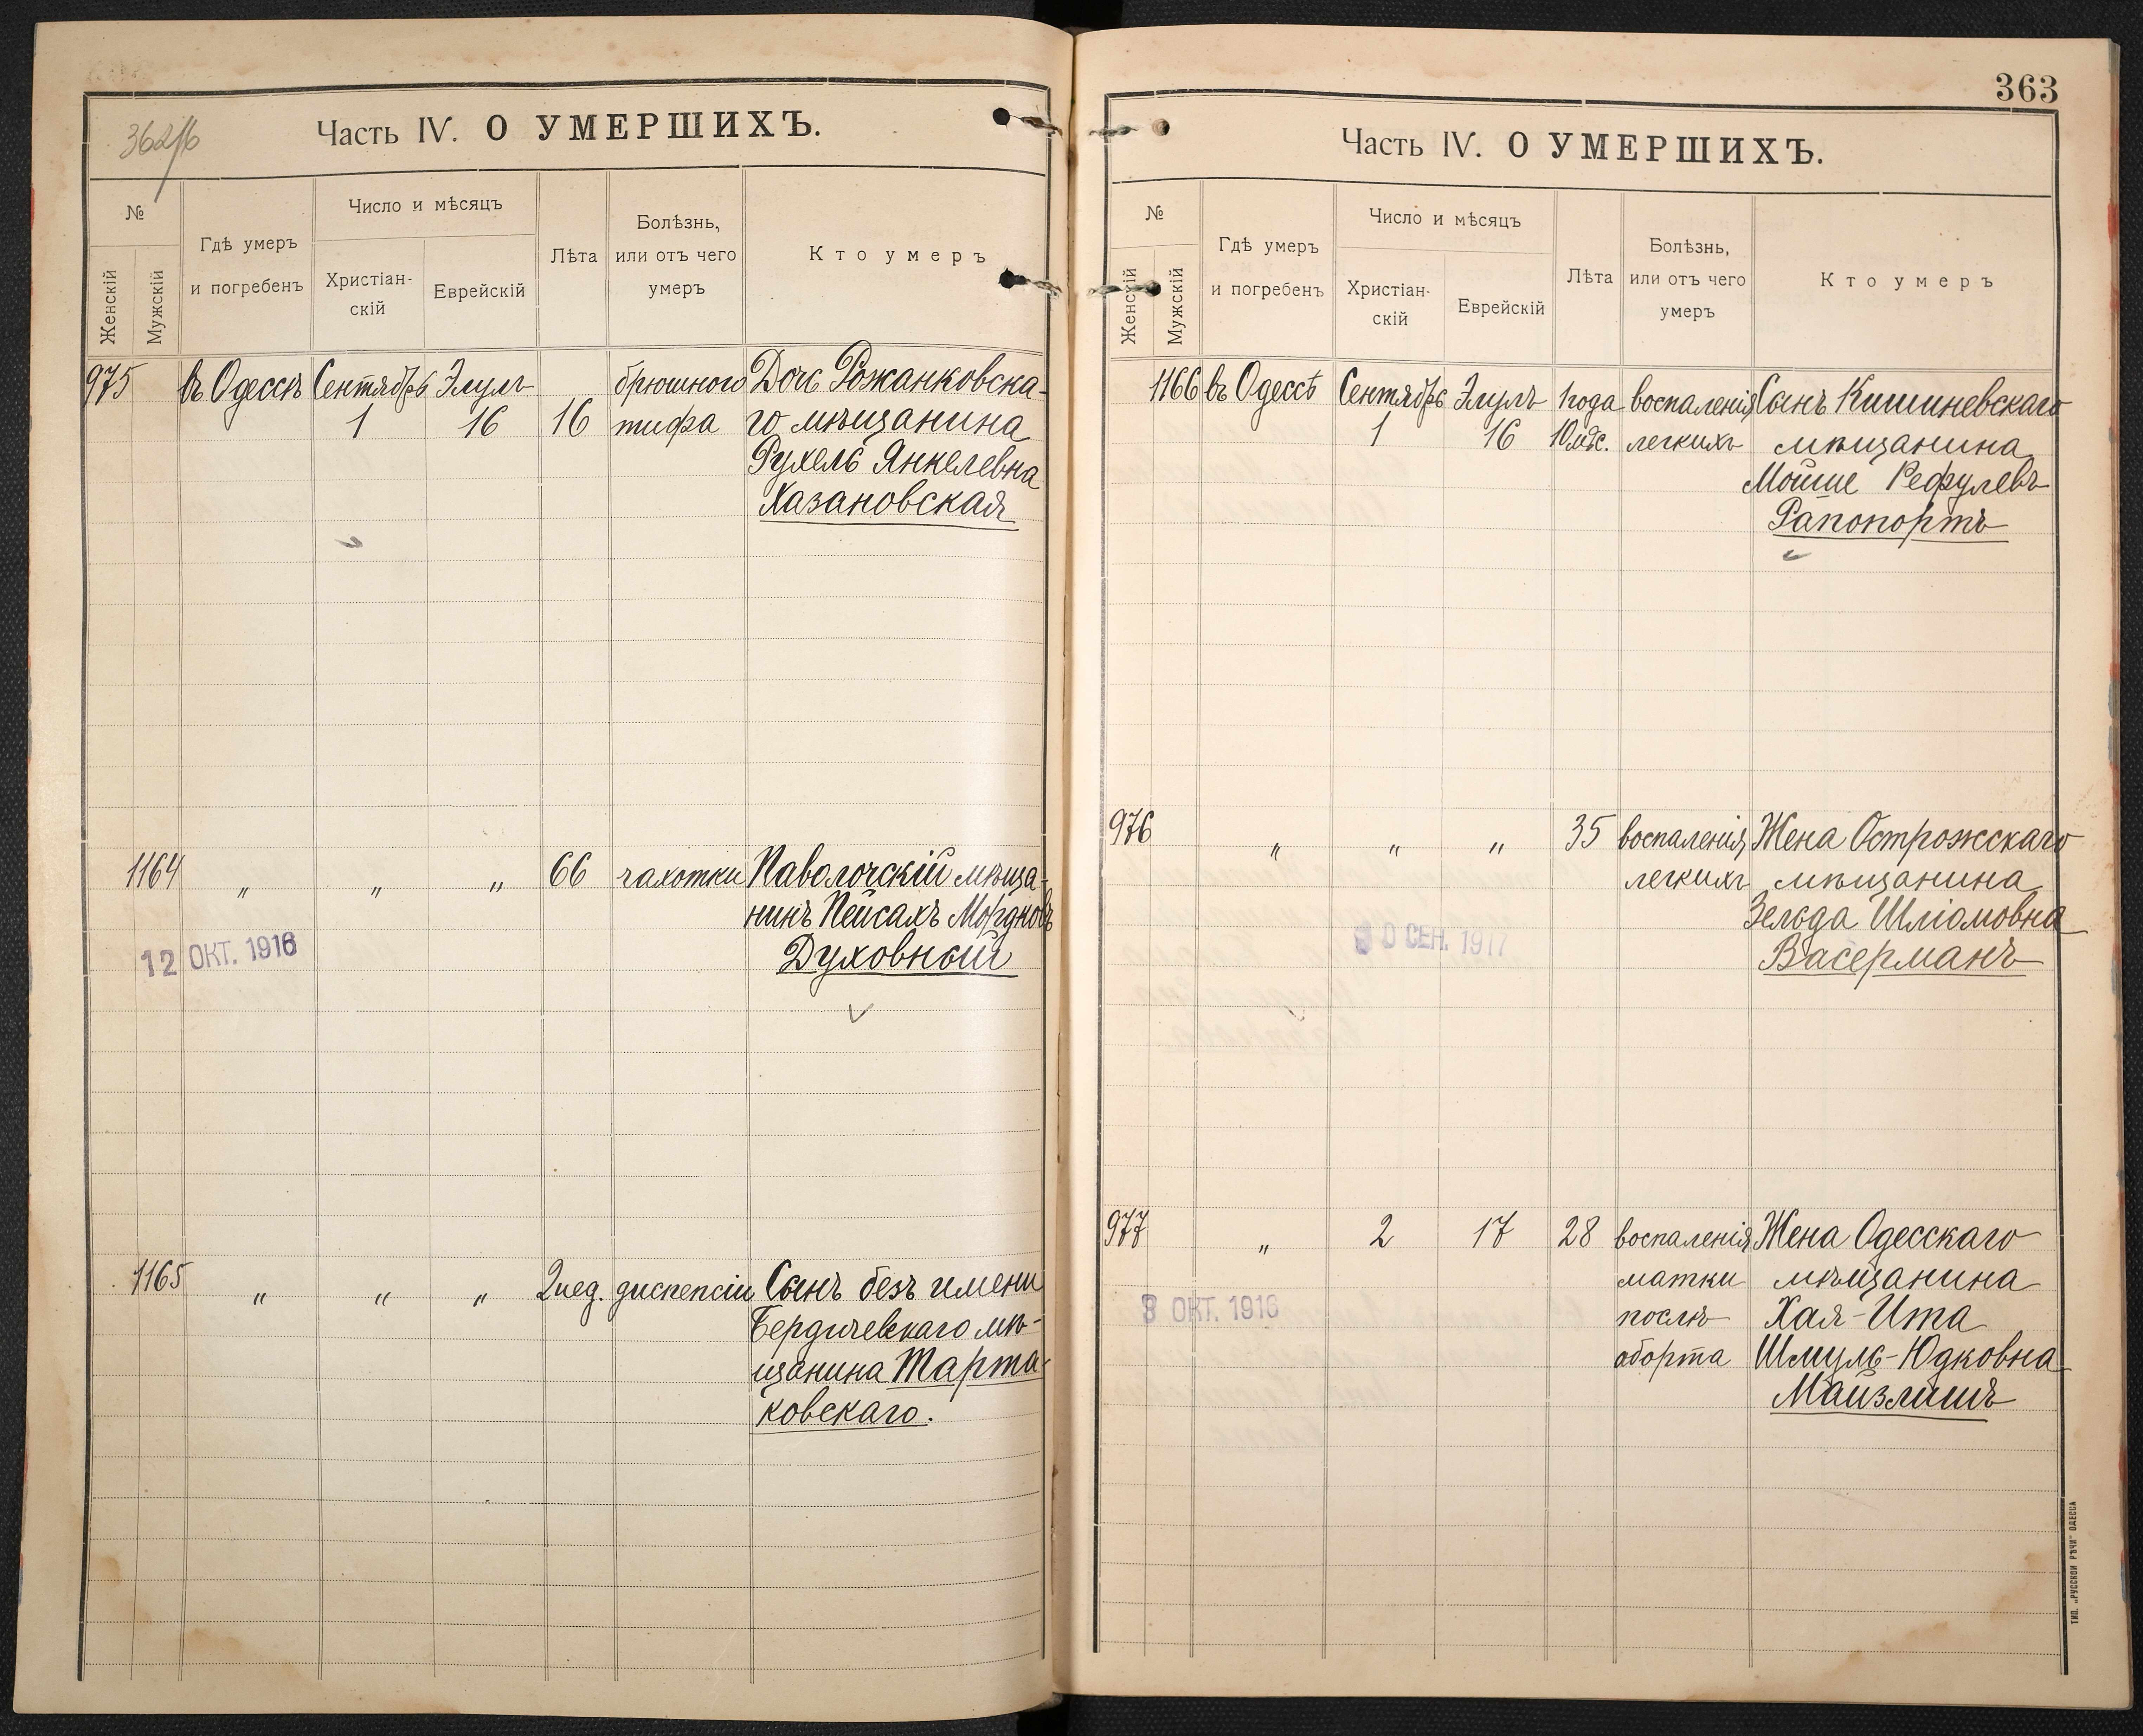 362/б
Часть IV. О УМЕРШИХЪ.
№
Женскій
Мужскій
Гдѣ умеръ
и погребенъ
Число и мѣсяцъ
Христіан-
скій
Еврейскій
Лѣта
Болѣзнь,
или отъ чего
умеръ
Кто умеръ
975 въ Одессѣ Сентябрь Элулъ брюшного Дочь Рожанковска-
1 16 16 тифа го мѣщанина
Рухель Янкелевна
Хазановская
1164 „ „ „ 66 чахотки Паволочскій мѣща-
нинъ Пейсахъ Мордковъ
12 ОКТ. 1916 Духовный
1165 „ „ „ 2 нед. диспепсіи Сынъ безъ имени
Бердичевскаго мѣ-
щанина Марта-
ковскаго.
363
Часть IV. О УМЕРШИХЪ.
№
Женскій
Мужскій
Гдѣ умеръ
и погребенъ
Число и мѣсяцъ
Христіан-
скій
Еврейскій
Лѣта
Болѣзнь,
или отъ чего
умеръ
Кто умеръ
1166 въ Одессѣ Сентябрь Элулъ 1 года воспаленія Сынъ Кишиневскаго
1 16 10 мѣс. легкихъ мѣщанина
Мойше Рефулевъ
Рапопортъ
976 „ „ „ 35 воспаленія Жена Острожскаго
легкихъ мѣщанина
Зельда Шліомовна
0 СЕН. 1917 Васерманъ
977 „ 2 17 28 воспаленія Жена Одесскаго
матки мѣщанина
8 ОКТ. 1916 послѣ Хая-Ита
аборта Шмуль-Юдковна
Майзлишъ
ТИП. „РУССКОЙ РѢЧИ" ОДЕССА